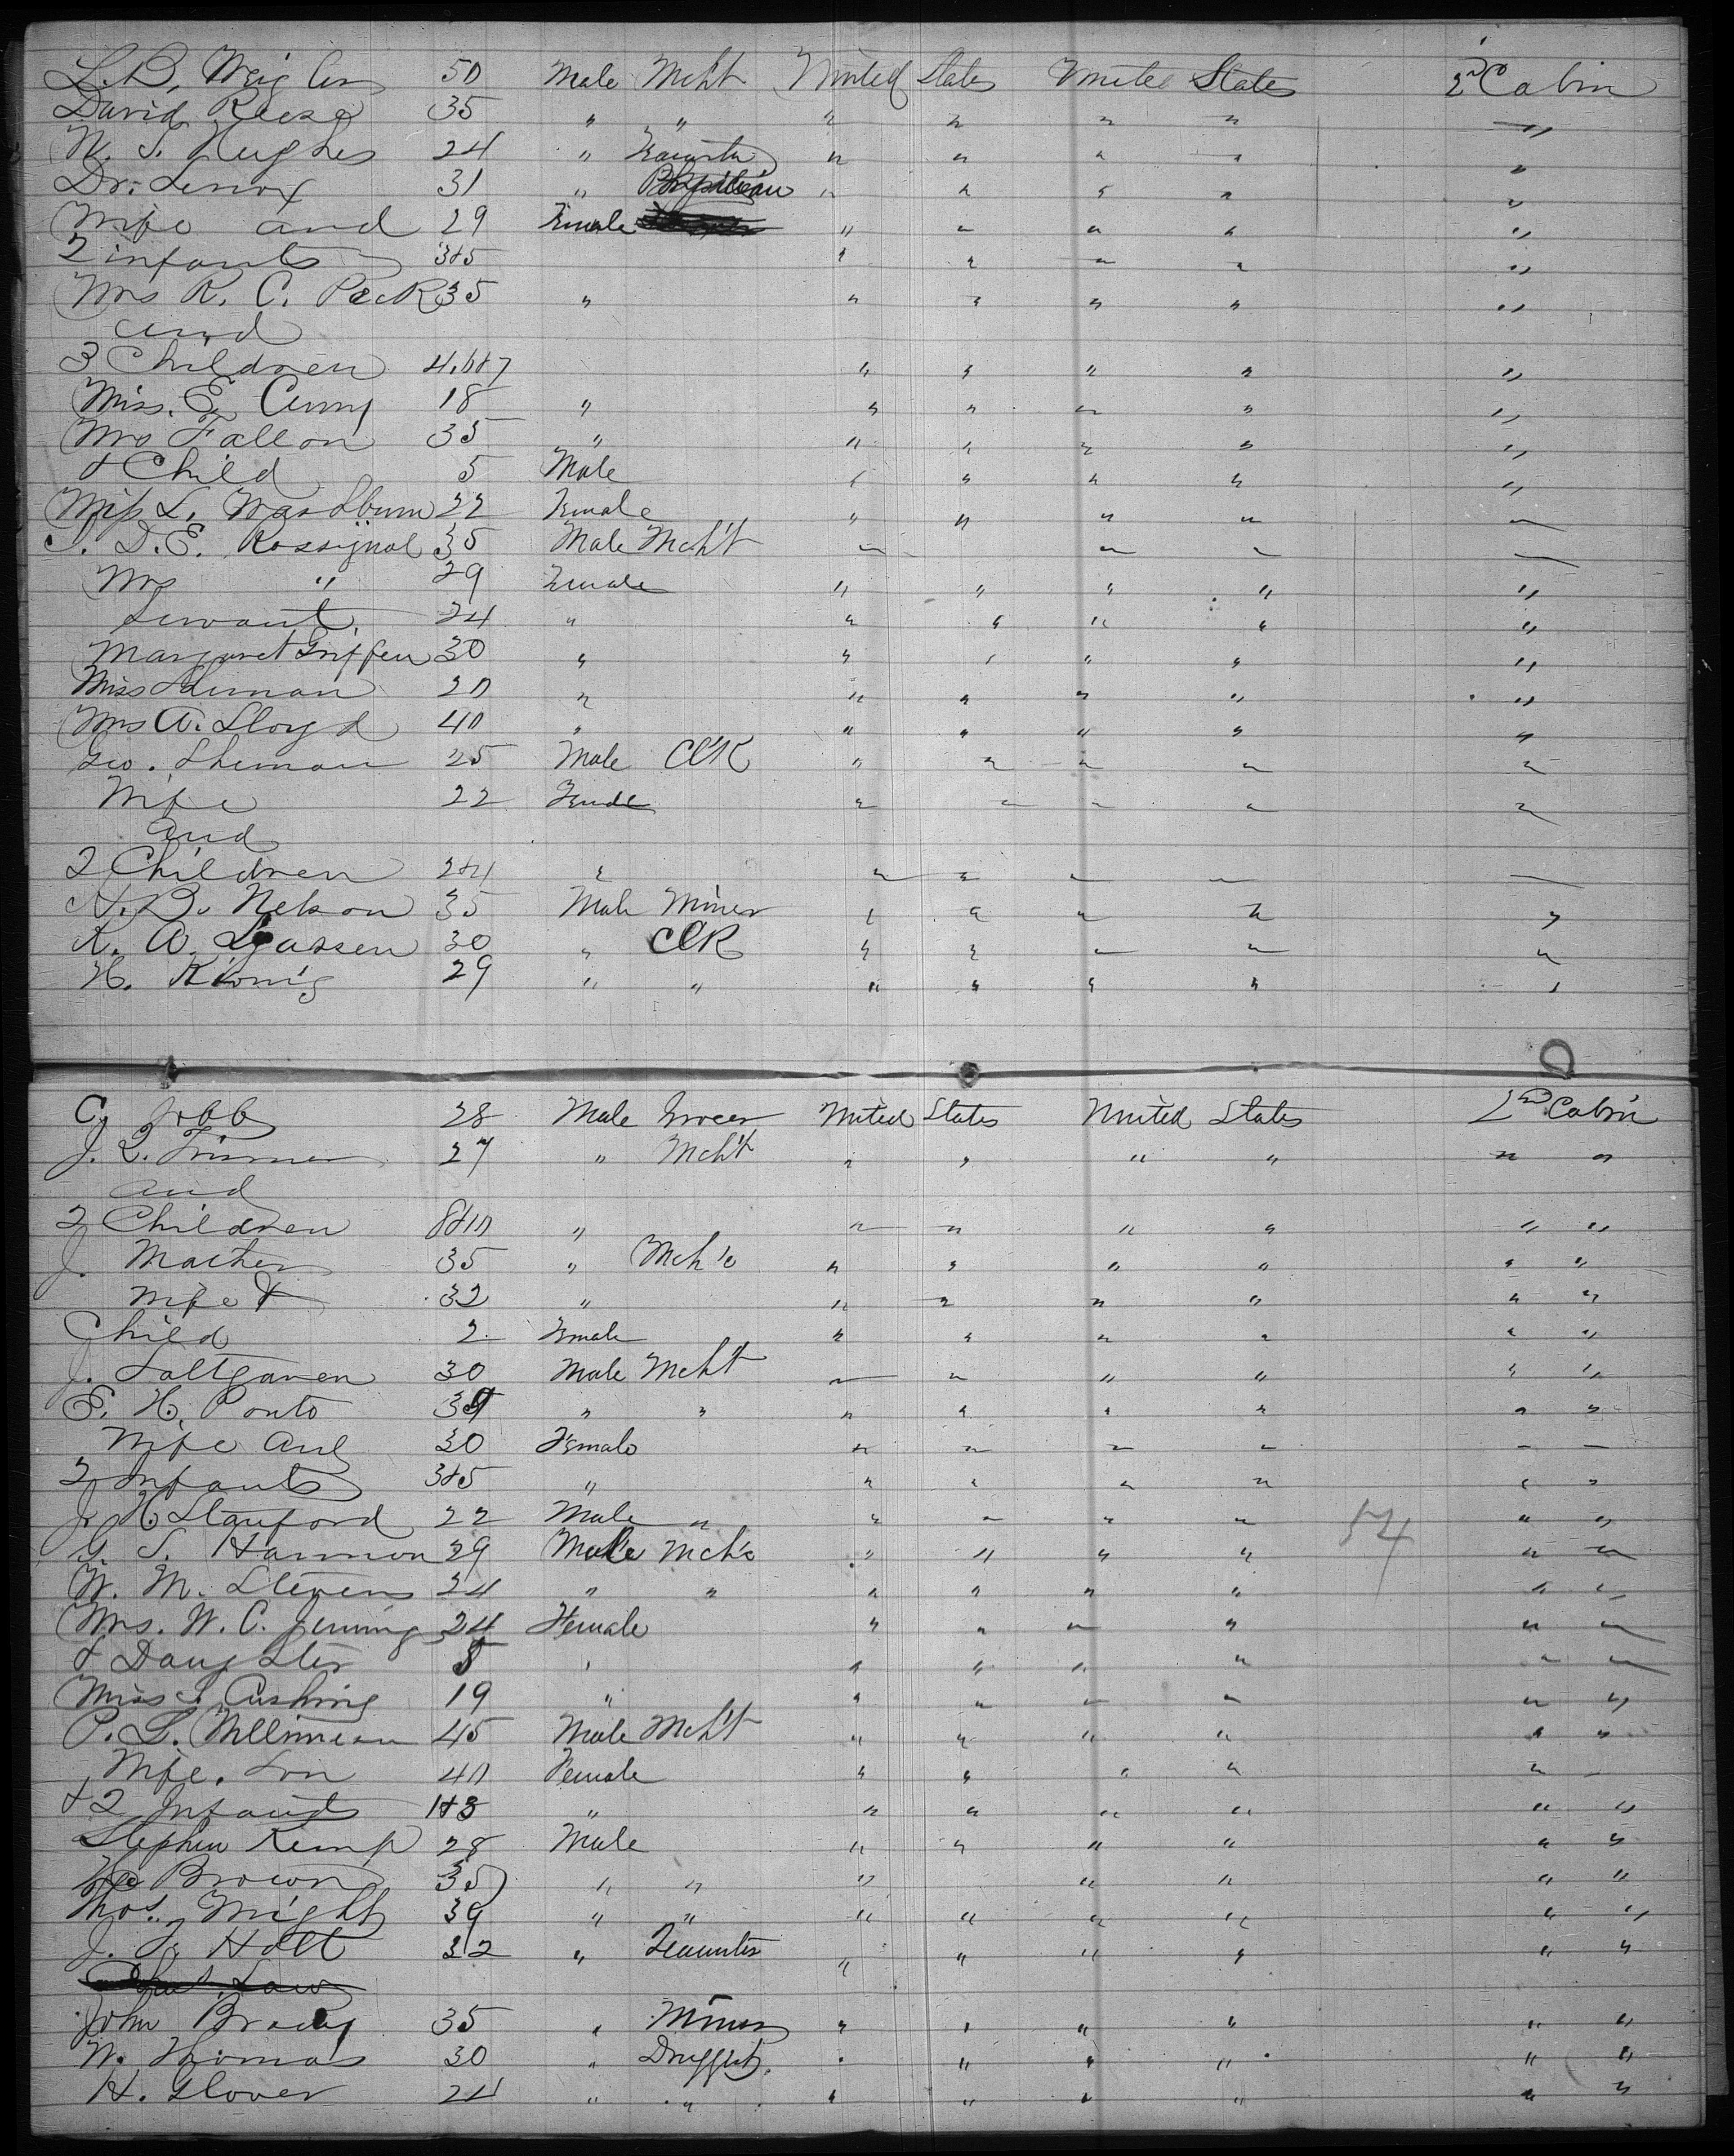 L. B. Weigler 50 Male Mcht United States United States 2nd Cabin
David Reese 35 " " " " " " "
W. S. Hughes 24 " " " " " "
Dr. Lenox 31 " Physician " " " " "
Wife and 29 Female " " " " "
2 infants 3&5 " " " " "
Mrs R. C. Peck 35 " " " " " "
and
3 Children 4,6&7 " " " " "
Miss. E. 18 " " " " " "
Mrs Fallon 35 " " " " " "
& Child 5 Male " " " " "
Miss L. Washburn 22 Female " " " " "
S. D. E. Rossignol 35 Male Mcht " " " "
Mrs " 29 Female " " " " "
Servant 24 " " " " " "
Margaret Griffen 30 " " " " " "
Miss 20 " " " " " "
Mrs A. Lloyd 40 " " " " " "
Geo. Sherman 25 Male Clk " " " " "
Wife 22 Female " " " " "
and
2 Children 2&4 " " " " " "
N. B. Nelson 35 Male Miner " " " " "
K. A. 30 " Clk " " " " "
H. König 29 " " " " " " "
C. Jobb 28 Male Grocer United States United States 2nd Cabin
J. L. 27 " Mcht " " " " " "
and
2 Children 8&10 " " " " " " "
J. Mather 35 " Mch'c " " " " " "
Wife & 32 " " " " " " "
Child 2 Female " " " " " "
J. Saltgaven 30 Male Mcht " " " " " "
E. H. Ponto 39 " " " " " " " "
Wife and 30 Female " " " " " "
2 Infants 3&5 " " " " " " "
J. H. Stanford 22 Male " " " " " " "
G. S. Harmon 29 Male Mch'c " " " " " "
W. M. Stevens 24 " " " " " " " "
Mrs. W. C. Jennings 24 Female " " " " " "
& Daughter 5 " " " " " " "
Miss S. Cushing 19 " " " " " " "
P. L. 45 Male Mcht " " " " " "
Wife. Son 40 Female " " " " " "
& 2 Infants 1&3 " " " " " " "
Stephen Kemp 28 Male " " " " " "
Brown 35 " " " " " " "
Thos. Wright 39 " " " " " " " "
J. T. Holt 32 " " " " " " "
John Brady 35 " Miner " " " " " "
W. Thomas 30 " Druggist. " " " " " "
H. Glover 24 " " " " " " " "
54